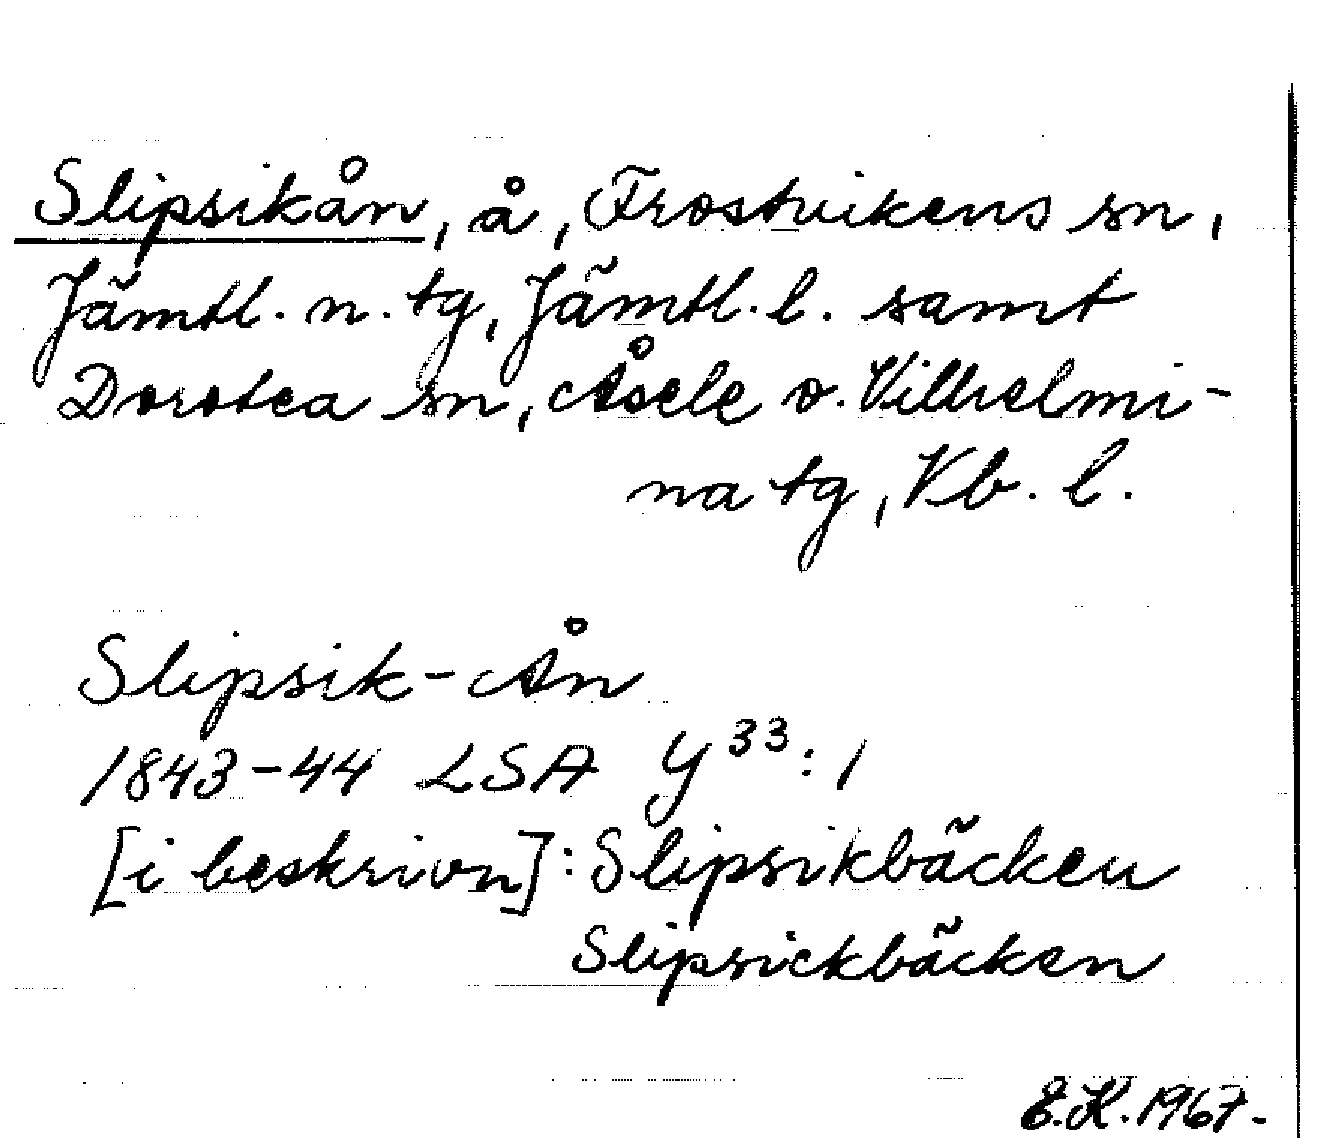 Slipsikån, å, Frostvikens sn,
Jämtl. n. tg, Jämtl. l. samt
Dorotea sn, Åsele o. Vilhelmi-
na tg, Vb. l.
Slipsik-Ån
1843-44 LSA Y³³:1
[i beskrivn]: Slipsikbäcken
Slipsickbäcken
E.K. 1967.